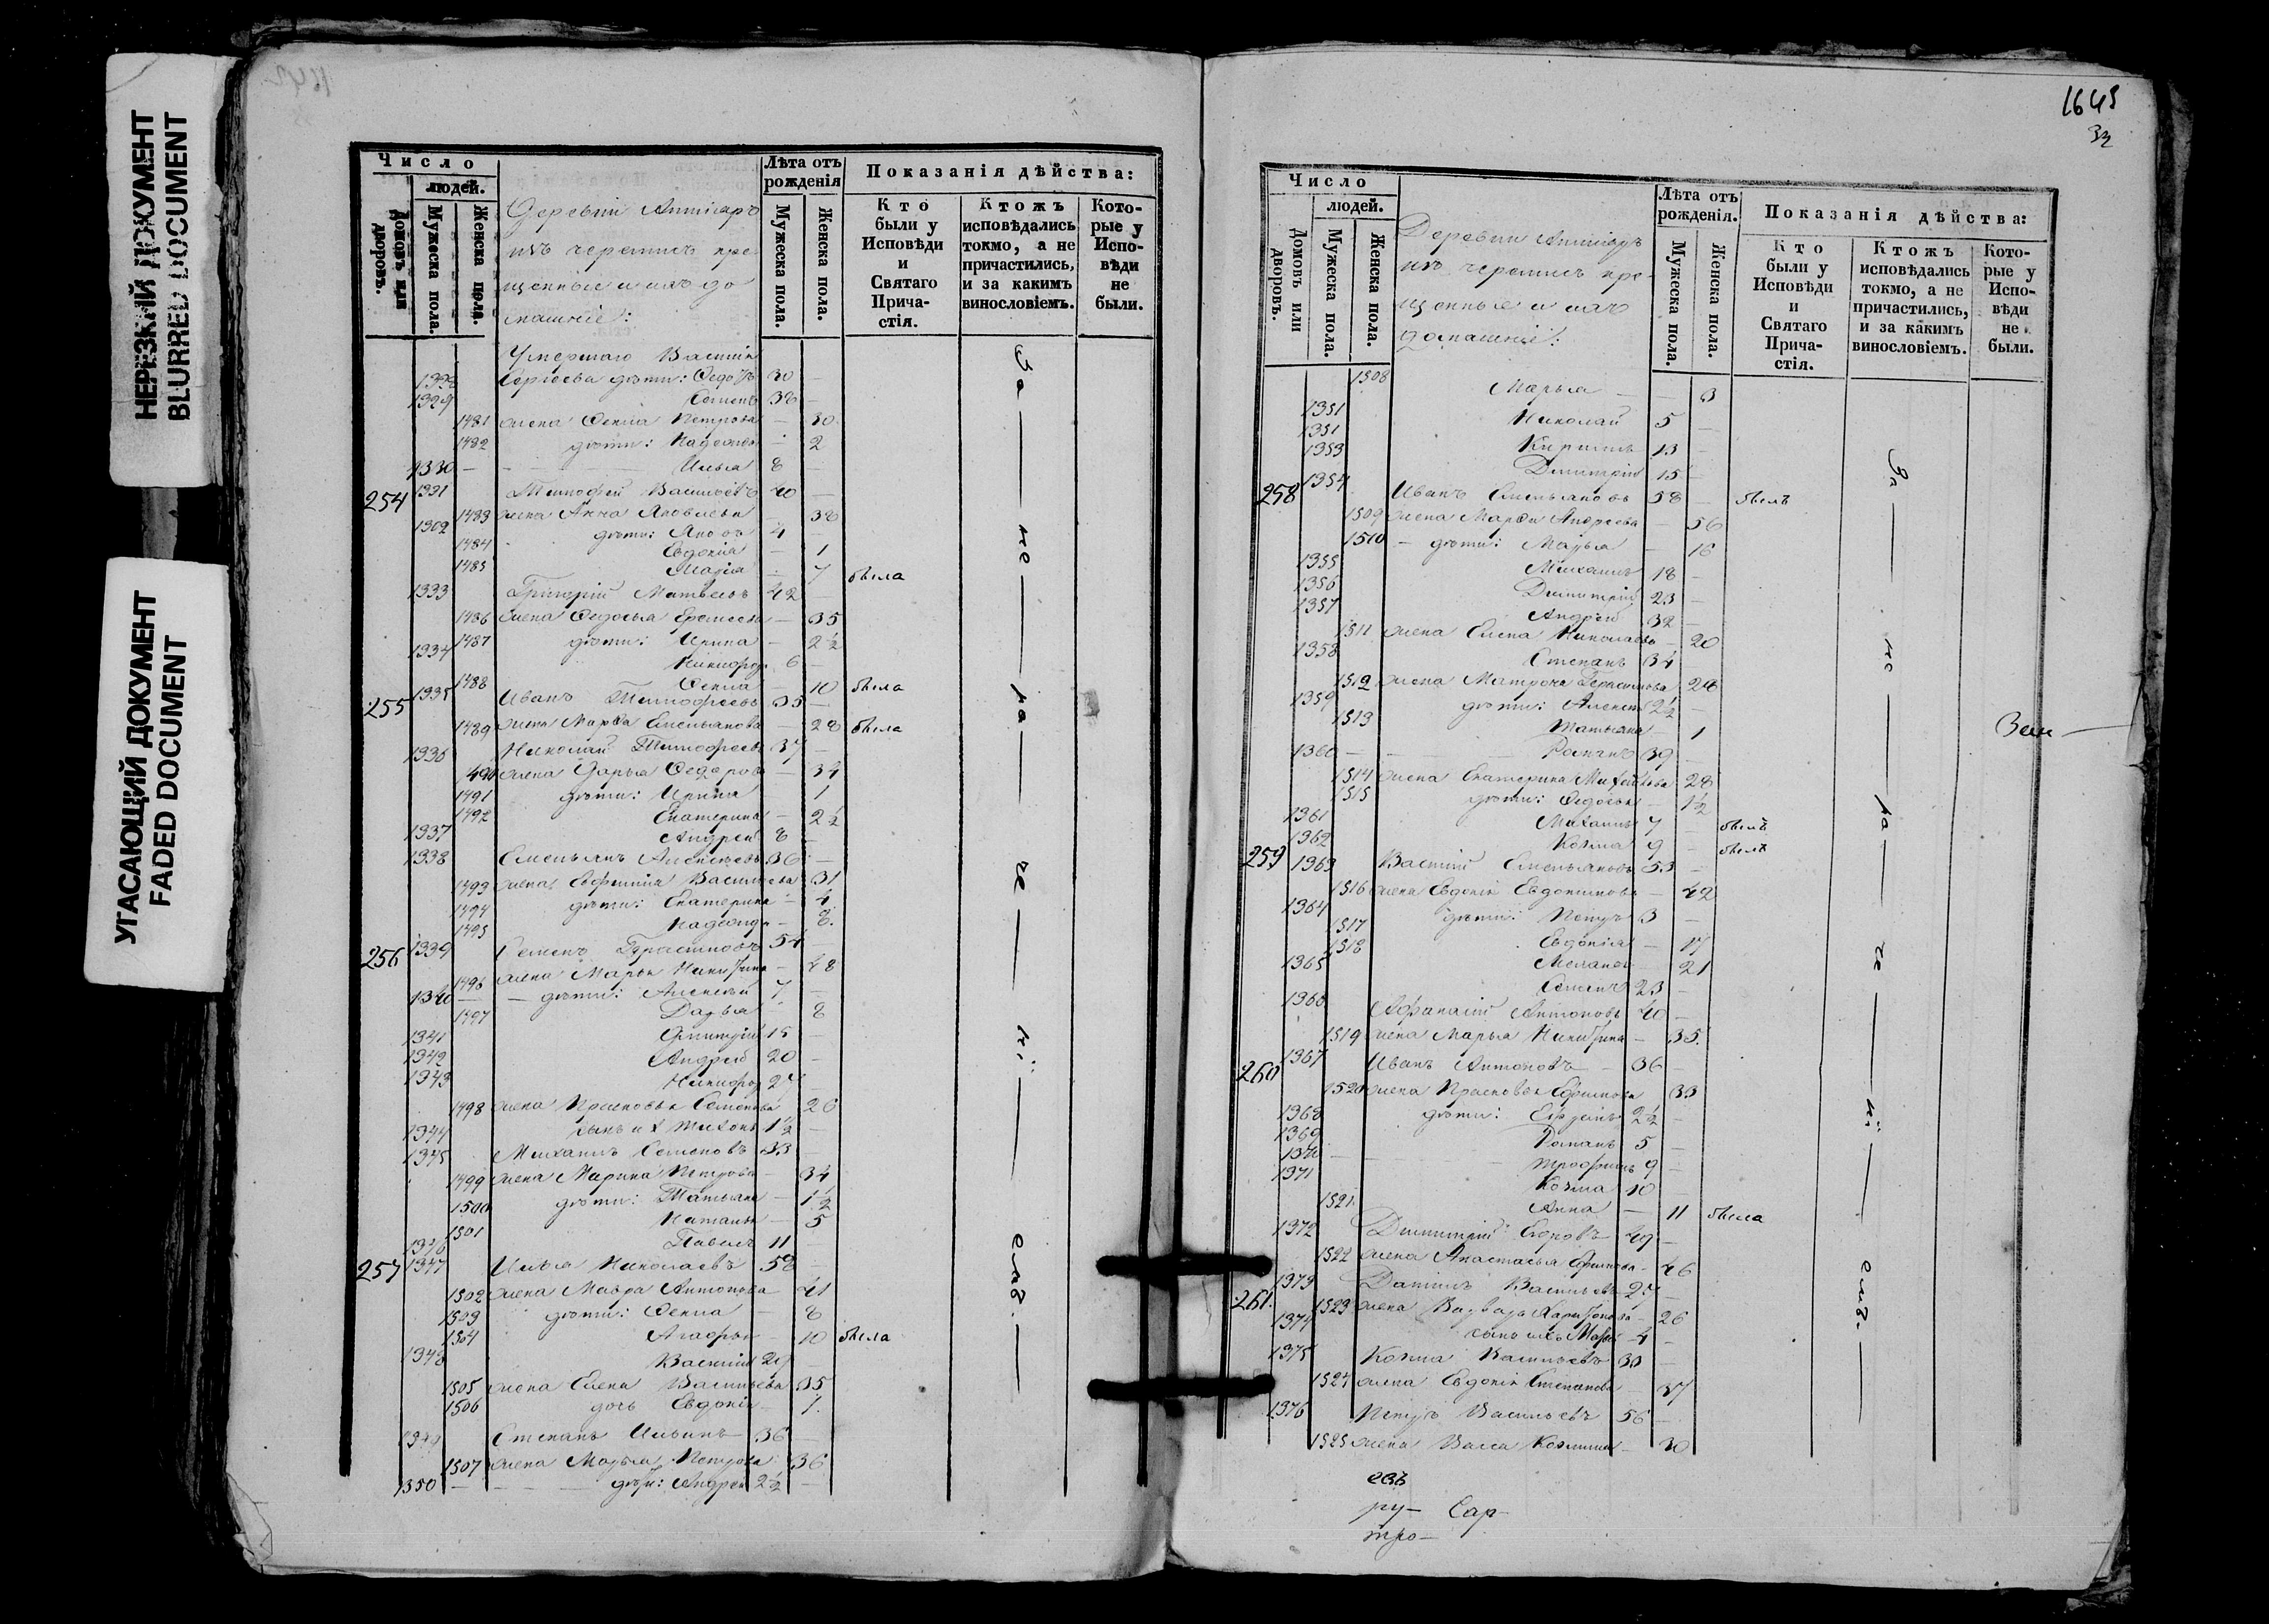 НЕРЕЗКИЙ ДОКУМЕНТ
BLURRED DOCUMENT
УГАСАЮЩИЙ ДОКУМЕНТ
FADED DOCUMENT
Число
людей.
Домовъ или дворовъ.
Мужеска пола.
Женска пола.
Деревни
изъ черемисъ кре
щенные и ихъ до
машніе:
Лѣта отъ рожденія
Мужеска пола.
Женска пола.
Показанія дѣйства:
Кто были у Исповѣди и Святаго Прича-стія.
Ктожъ исповѣдались токмо, а не причастились, и за какимъ винословіемъ.
Кото-рые у Испо-вѣди не были.
Умершаго
дѣти: Ѳедоръ 30 —
1329 Семенъ 38 —
1481 жена Ѳекла Петрова — 30
1482 дѣти: Надежда — 2
1330 — Илья 8 —
254 1331 Тимофей Васильевъ 40 —
1483 жена Анна Яковлева — 38
дѣти: Яковъ 4 —
1484 Евдокія — 1
1485 Марія — 7 была
1333 Григорій Матвеевъ 42 —
1486 жена Ѳедосья — 35
1487 дѣти: Ирина — 2½
1334 Никифоръ 6 —
1488 Ѳекла — 10 была
255 1335 Иванъ Тимофеевъ 35 —
1489 жена Марѳа Емельянова — 28 была
1336 Николай Тимофеевъ 37 —
1490 жена Дарья Ѳедорова — 34
1491 дѣти: Ирина — 1
1492 Екатерина — 2½
1337 Андрей 8 —
1338 Емельянъ Алексѣевъ 36 —
1493 жена Евфимія Васильева 31
1494 дѣти: Екатерина — 4
1495 Надежда — 8
256 1339 Семенъ Герасимовъ 54 —
1496 жена Марья Никитина — 48
1340 — дѣти: Алексѣй 7 —
1497 Дарья 8
1341 Дмитрій 15 —
1342 Андрей 20 —
1343 Никифоръ 27 —
1498 жена Прасковья Семенова 26
1344 сынъ ихъ Тихонъ 1½ —
1345 Михаилъ Семеновъ 33 —
1499 жена Марина Петрова — 34
1500 дѣти: Татьяна — 1½
1501 Наталья — 5
1346 Павелъ 11 —
257 1347 Илья Николаевъ 58 —
1502 жена Мавра Антонова 41
1503 дѣти: Ѳекла — 8
1504 Агафья — 10 была
1348 Василій 29 —
1505 жена Елена Васильева 35
1506 дочь Евдокія — 1
1349 Степанъ Ильинъ 36 —
1507 жена Марья Петрова 36
1350 — дѣти: Андрей 2½ —
За — не — ра — че — ні — емъ. —
1645
32
Число
людей.
Домовъ или дворовъ.
Мужеска пола.
Женска пола.
Деревни
изъ черемисъ кре-
щенные и ихъ
домашніе:
Лѣта отъ рожденія.
Мужеска пола.
Женска пола.
Показанія дѣйства:
Кто были у Исповѣди и Святаго Прича-стія.
Ктожъ исповѣдались токмо, а не причастились, и за какимъ винословіемъ.
Кото-рые у Испо-вѣди не были.
1508 Марья — 3
1351 Николай 5 —
1351 Кириллъ 13 —
1353 Димитрій 15 —
258 1354 Иванъ Емельяновъ 58 — былъ
1509 жена Марѳа Андреева — 56
1510 — дѣти: Марья — 16
1355 Михаилъ 18 —
1356 Димитрій 23 —
1357 Андрей 32 —
1511 жена Елена Николаева — 20
1358 Степанъ 34 —
1512 жена Матрона Герасимова 28
1359 дѣти: Алексѣй 2½ —
1513 Татьяна — 1
1360 — Романъ 39 —
1514 жена Екатерина Михайлова 28
1515 дѣти: Ѳедосья — 1½
1361 Михаилъ 7 — былъ
1362 Козма 9 — былъ
259 1363 Василій Емельяновъ 53 —
1516 жена Евдокія Евдокимова — 42
1364 дѣти: Петръ 3 —
1517 Евдокія — 17
1518 21
1365 Семенъ 23 —
1366 Афанасій Антоновъ 40 —
1519 жена Марья Никитина — 35
260 1367 Иванъ Антоновъ — 36 —
1520 жена Прасковья Ефимова 33
1368 дѣти: 2½ —
1369 Романъ 5 —
1370 Трофимъ 9 —
1371 Козма 10 —
1521 Анна — 11 была
1372 Димитрій 49 —
1522 жена Анастасья Ефимова — 46
1373 Даніилъ Васильевъ 27 —
261. 1523 жена Варвара Харитонова — 26
1374 сынъ ихъ 4 —
1375 Козма Васильевъ 33 —
1524 жена Евдокія Степанова — 37
1376 Петръ Васильевъ 56 —
1525 жена Васса Козмина — 30
За — не — ра — че — ні — емъ. —
Зем —
ру — Сар —
тро —